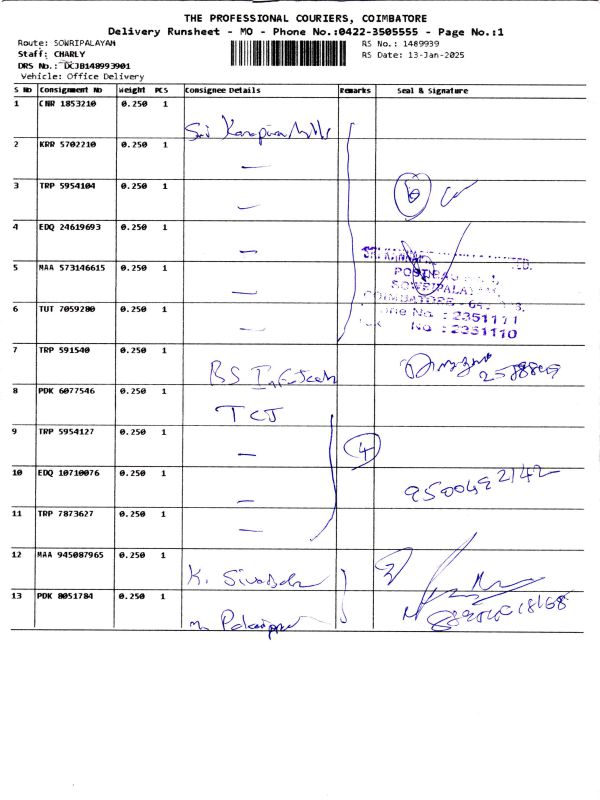 THE PROFESSIONAL COURIERS, COIMBATORE
Delivery Runsheet - MO - Phone No.:0422-3505555 - Page No.:1
Route: SOWRIPALAYAM RS No.: 1489939
Staff: CHARLY RS Date: 13-Jan-2025
DRS No.: DCJB148993901
Vehicle: Office Delivery
S No Consignment No Weight PCS Consignee Details Remarks Seal & Signature
1 CNR 1853210 0.250 1
Sri
2 KRR 5702210 0.250 1
—
3 TRP 5954104 0.250 1
— 6
4 EDQ 24619693 0.250 1
—
5 MAA 573146615 0.250 1
—
SOWRIPALAYAM
COIMBATORE
6 TUT 7059280 0.250 1
—
No : 2351111
No : 2351110
7 TRP 591540 0.250 1
BS Infotech
8 PDK 6077546 0.250 1
TCJ
9 TRP 5954127 0.250 1
— 4
10 EDQ 10710076 0.250 1
— 9500492142
11 TRP 7873627 0.250 1
—
12 MAA 945087965 0.250 1
K.
13 PDK 8051784 0.250 1